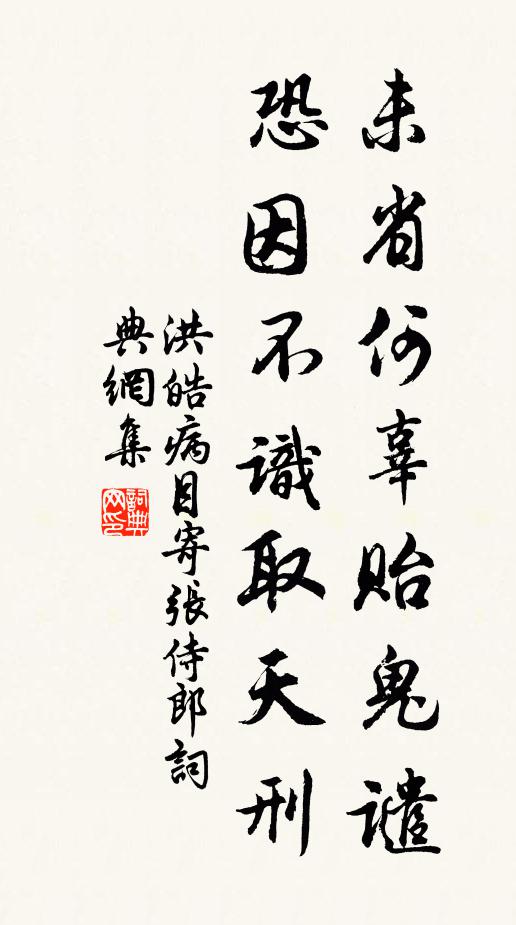 未省何辜貽鬼譴
恐因不識取天刑
洪皓病目寄張侍郎詞
典網集
詞典
网印